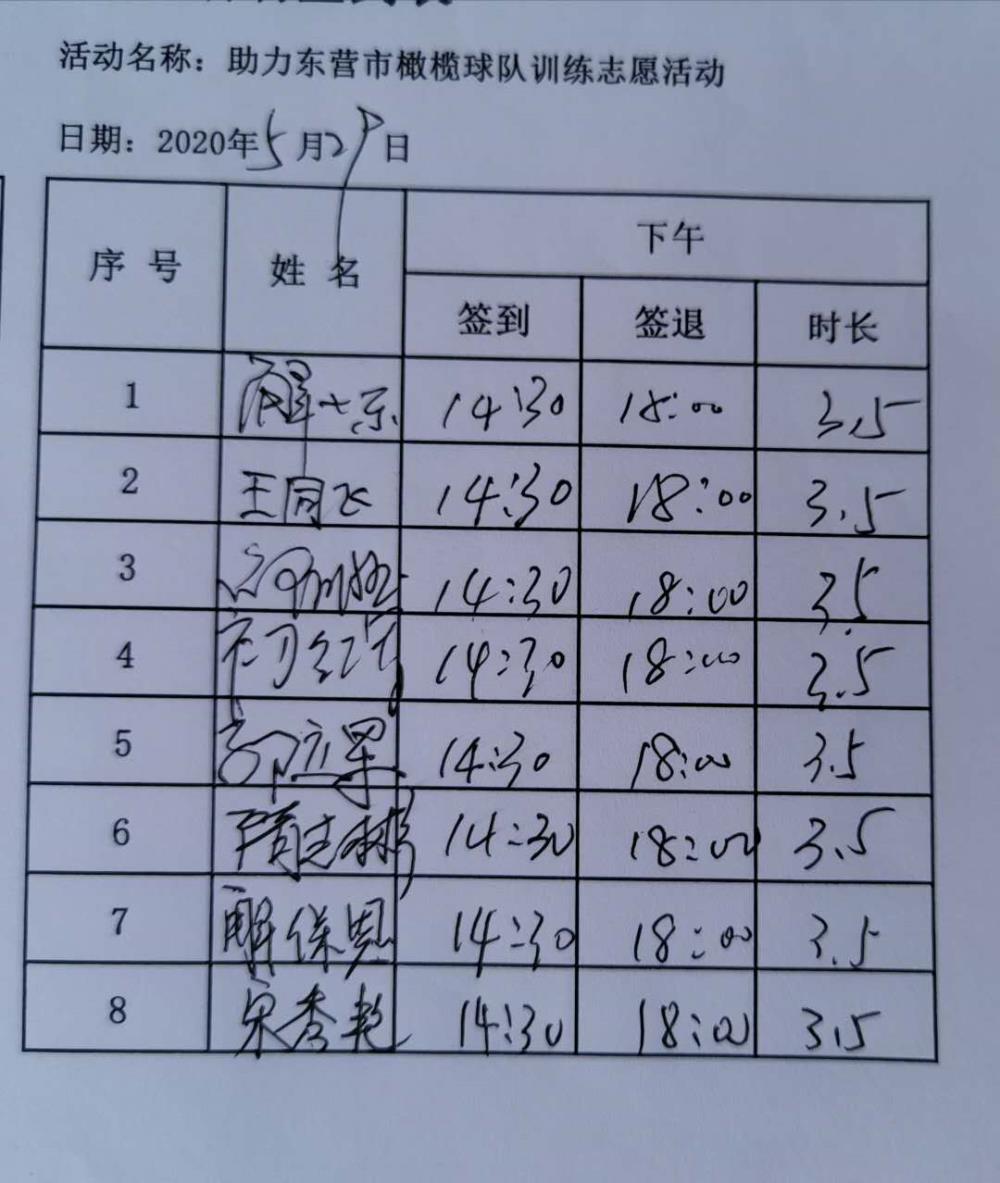 活动名称：助力东营市橄榄球队训练志愿活动
日期：2020年5月29日
序号 姓名 下午
签到 签退 时长
1 14:30 18:00 3.5
2 王同飞 14:30 18:00 3.5
3 14:30 18:00 3.5
4 14:30 18:00 3.5
5 14:30 18:00 3.5
6 14:30 18:00 3.5
7 解保恩 14:30 18:00 3.5
8 宋秀艳 14:30 18:00 3.5